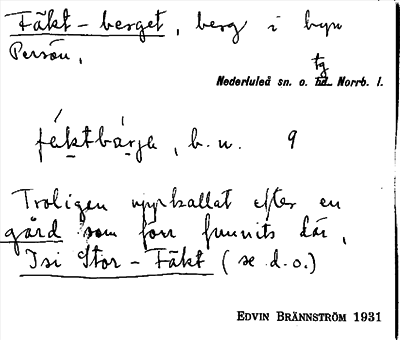 Fäkt-berget, berg i byn
Persön,
tg
Nederluleå sn. o. hd. Norrb. l.
féktbárja, b. u. 9
Troligen uppkallat efter en
gård som förr funnits där,
Isi Stor-Fäkt (se d.o.)
EDVIN BRÄNNSTRÖM 1931